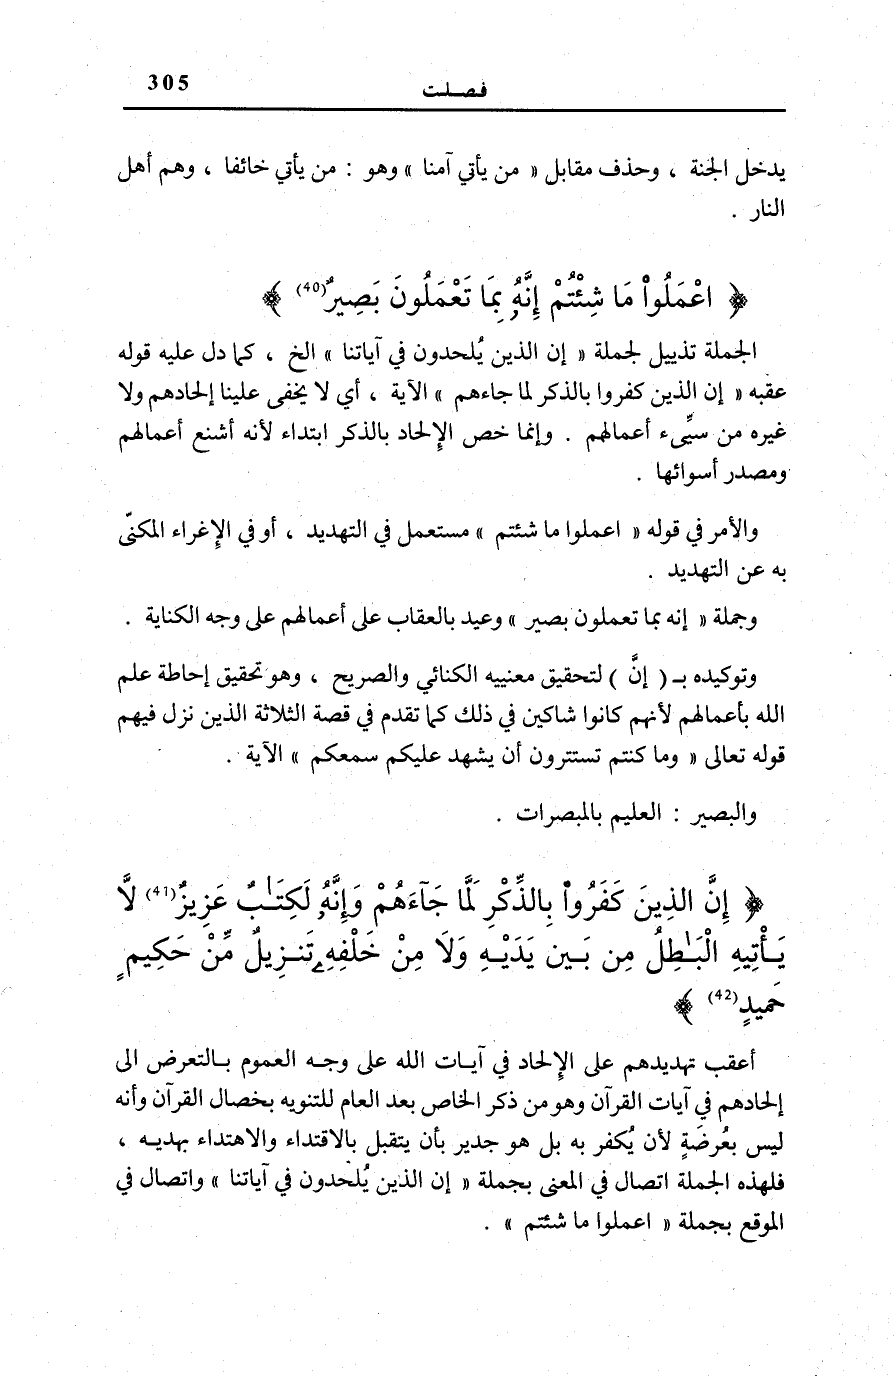 305
فصلت
يدخل الجنة ، وحذف مقابل « من يأتي آمنا » وهو : من يأتي خائفا ، وهم أهل
النار .
﴿ اعْمَلُواْ مَا شِئْتُمْ إِنَّهُۥ بِمَا تَعْمَلُونَ بَصِيرٌ (40) ﴾
الجملة تذييل لجملة « إن الذين يُلحدون في آياتنا » الخ ، كما دل عليه قوله
عقبه « إن الذين كفروا بالذكر لما جاءهم » الآية ، أي لا يخفى علينا إلحادهم ولا
غيره من سيِّىء أعمالهم . وإنما خص الإلحاد بالذكر ابتداء لأنه أشنع أعمالهم
ومصدر أسوائها .
والأمر في قوله « اعملوا ما شئتم » مستعمل في التهديد ، أو في الإغراء المكنّى
به عن التهديد .
وجملة « إنه بما تعملون بصير » وعيد بالعقاب على أعمالهم على وجه الكناية .
وتوكيده بـ ( إنَّ ) لتحقيق معنييه الكنائي والصريح ، وهو تحقيق إحاطة علم
الله بأعمالهم لأنهم كانوا شاكين في ذلك كما تقدم في قصة الثلاثة الذين نزل فيهم
قوله تعالى « وما كنتم تستترون أن يشهد عليكم سمعكم » الآية .
والبصير : العليم بالمبصرات .
﴿ إِنَّ الذِينَ كَفَرُواْ بِالذِّكْرِ لَمَّا جَآءَهُمْ وَإِنَّهُۥ لَكِتَـٰبٌ عَزِيزٌ (41) لَّا
يَـأْتِيهِ الْبَـٰطِلُ مِن بَـينِ يَدَيْـهِ وَلَا مِنْ خَلْفِهِۦ تَنـزِيلٌ مِّنْ حَكِيمٍ
حَمِيدٍ (42) ﴾
أعقب تهديدهم على الإلحاد في آيـات الله على وجـه العموم بـالتعرض الى
إلحادهم في آيات القرآن وهو من ذكر الخاص بعد العام للتنويه بخصال القرآن وأنه
ليس بعُرضَةٍ لأن يُكفر به بل هو جدير بأن يتقبل بالاقتداء والاهتداء بهديـه ،
فلهذه الجملة اتصال في المعنى بجملة « إن الذين يُلحدون في آياتنا » واتصال في
الموقع بجملة « اعملوا ما شئتم » .